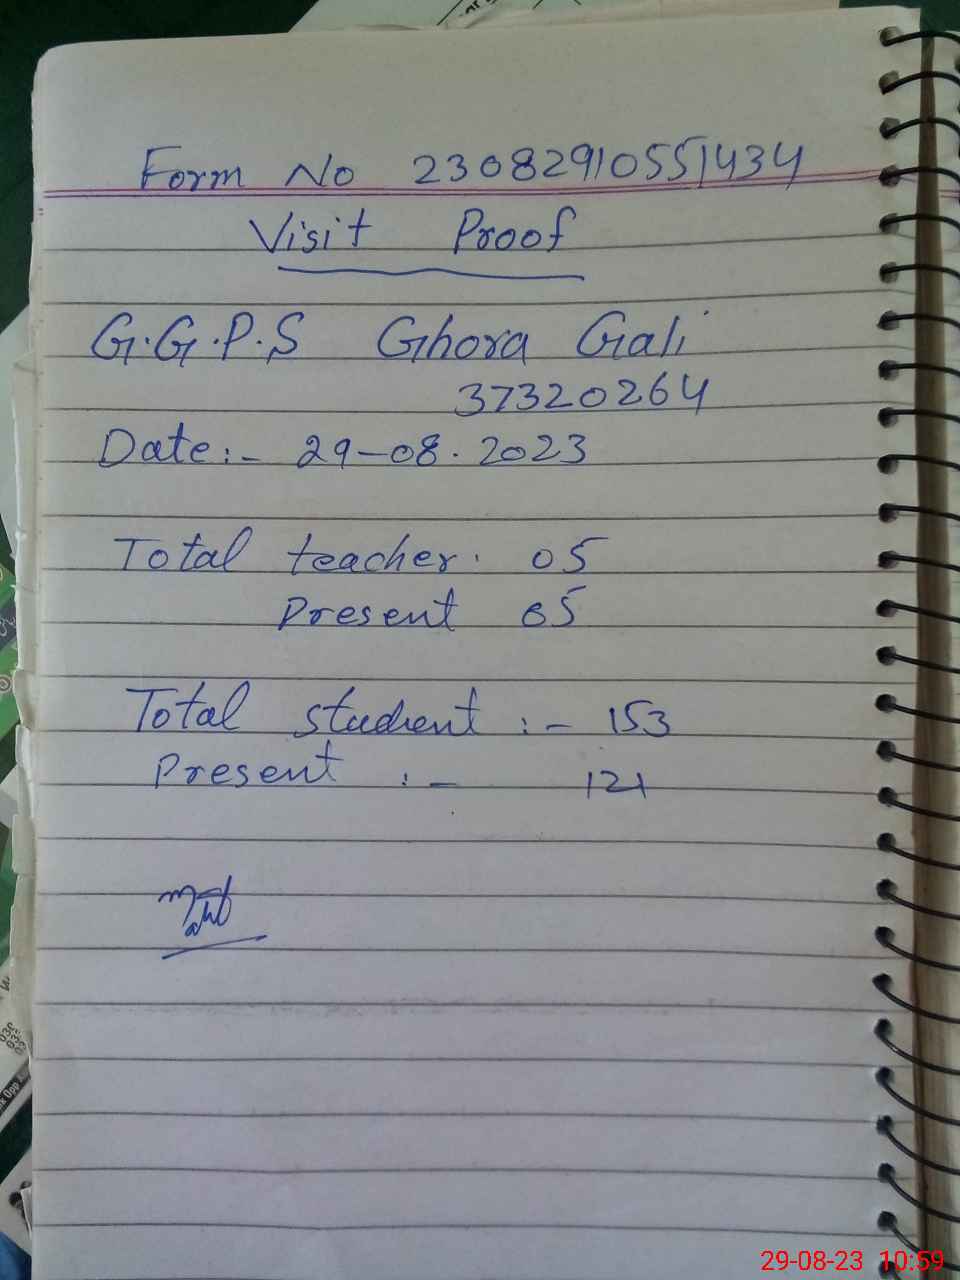 Form No 23082910551434
Visit Proof
G.G.P.S Ghora Gali
37320264
Date:- 29-08.2023
Total teacher. 05
Present 05
Total student :- 153
Present :- 121
29-08-23 10:59